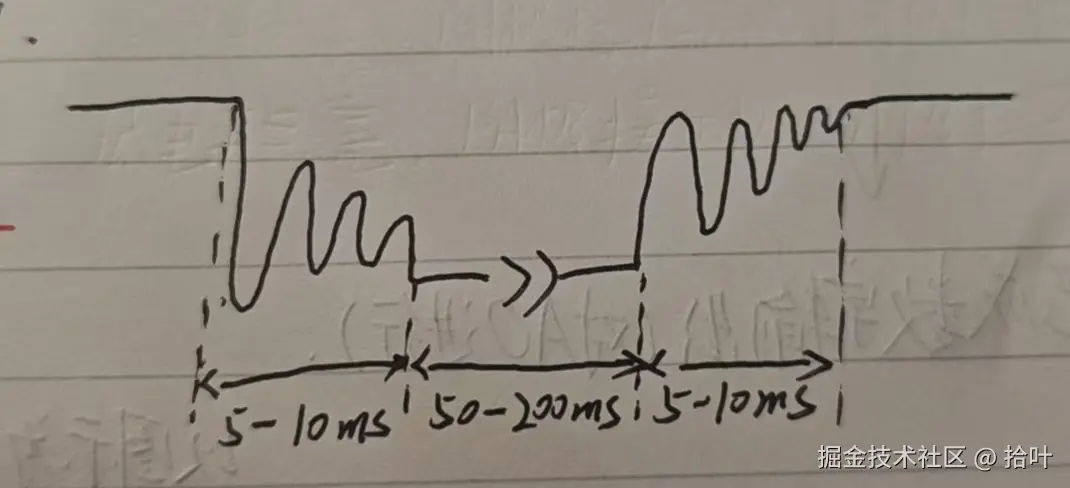 5-10ms 50-200ms 5-10ms
掘金技术社区 @ 拾叶